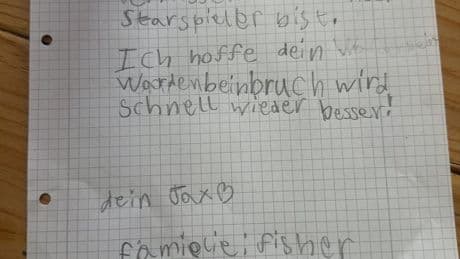 Starspieler bist.
Ich hoffe dein
Wacrtenbeinbruch wird
schnell wieder besser!
dein Jax
famielie; fisher